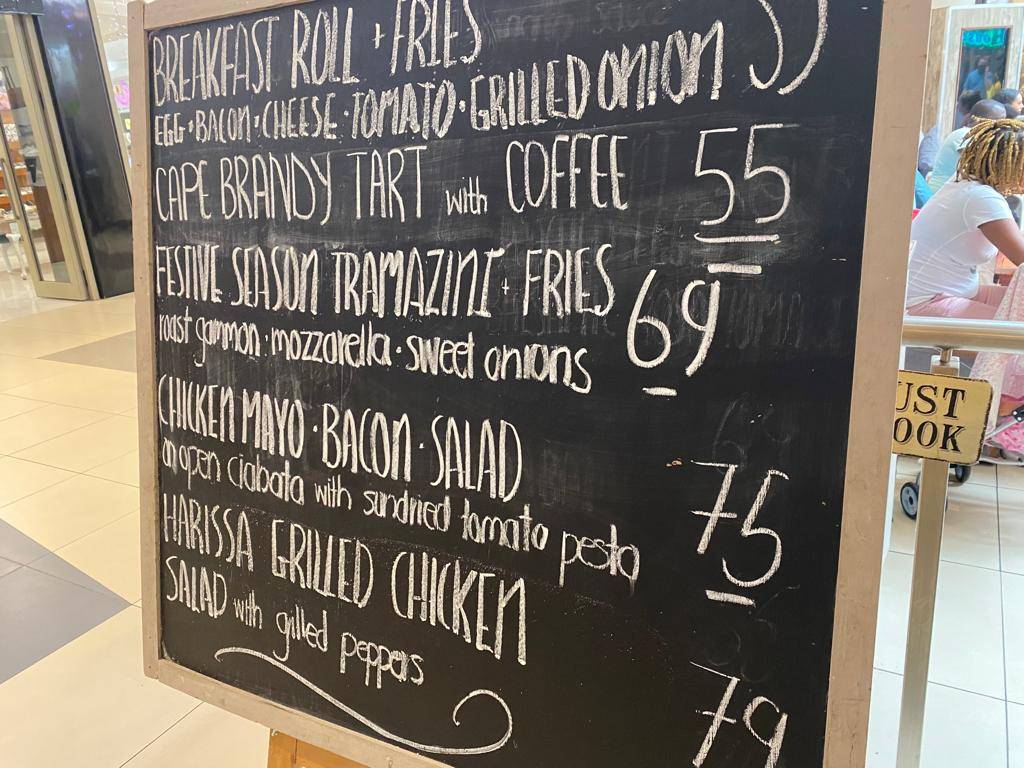 BREAKFAST ROLL + FRIES
EGG · BACON · CHEESE · TOMATO · GRILLED ONION
CAPE BRANDY TART with COFFEE 55
FESTIVE SEASON TRAMAZINI + FRIES 69
roast gammon · mozzarella · sweet onions
CHICKEN MAYO · BACON · SALAD 75
an open ciabata with sundried tomato pesto
HARISSA GRILLED CHICKEN
SALAD with grilled peppers 79
UST
OOK